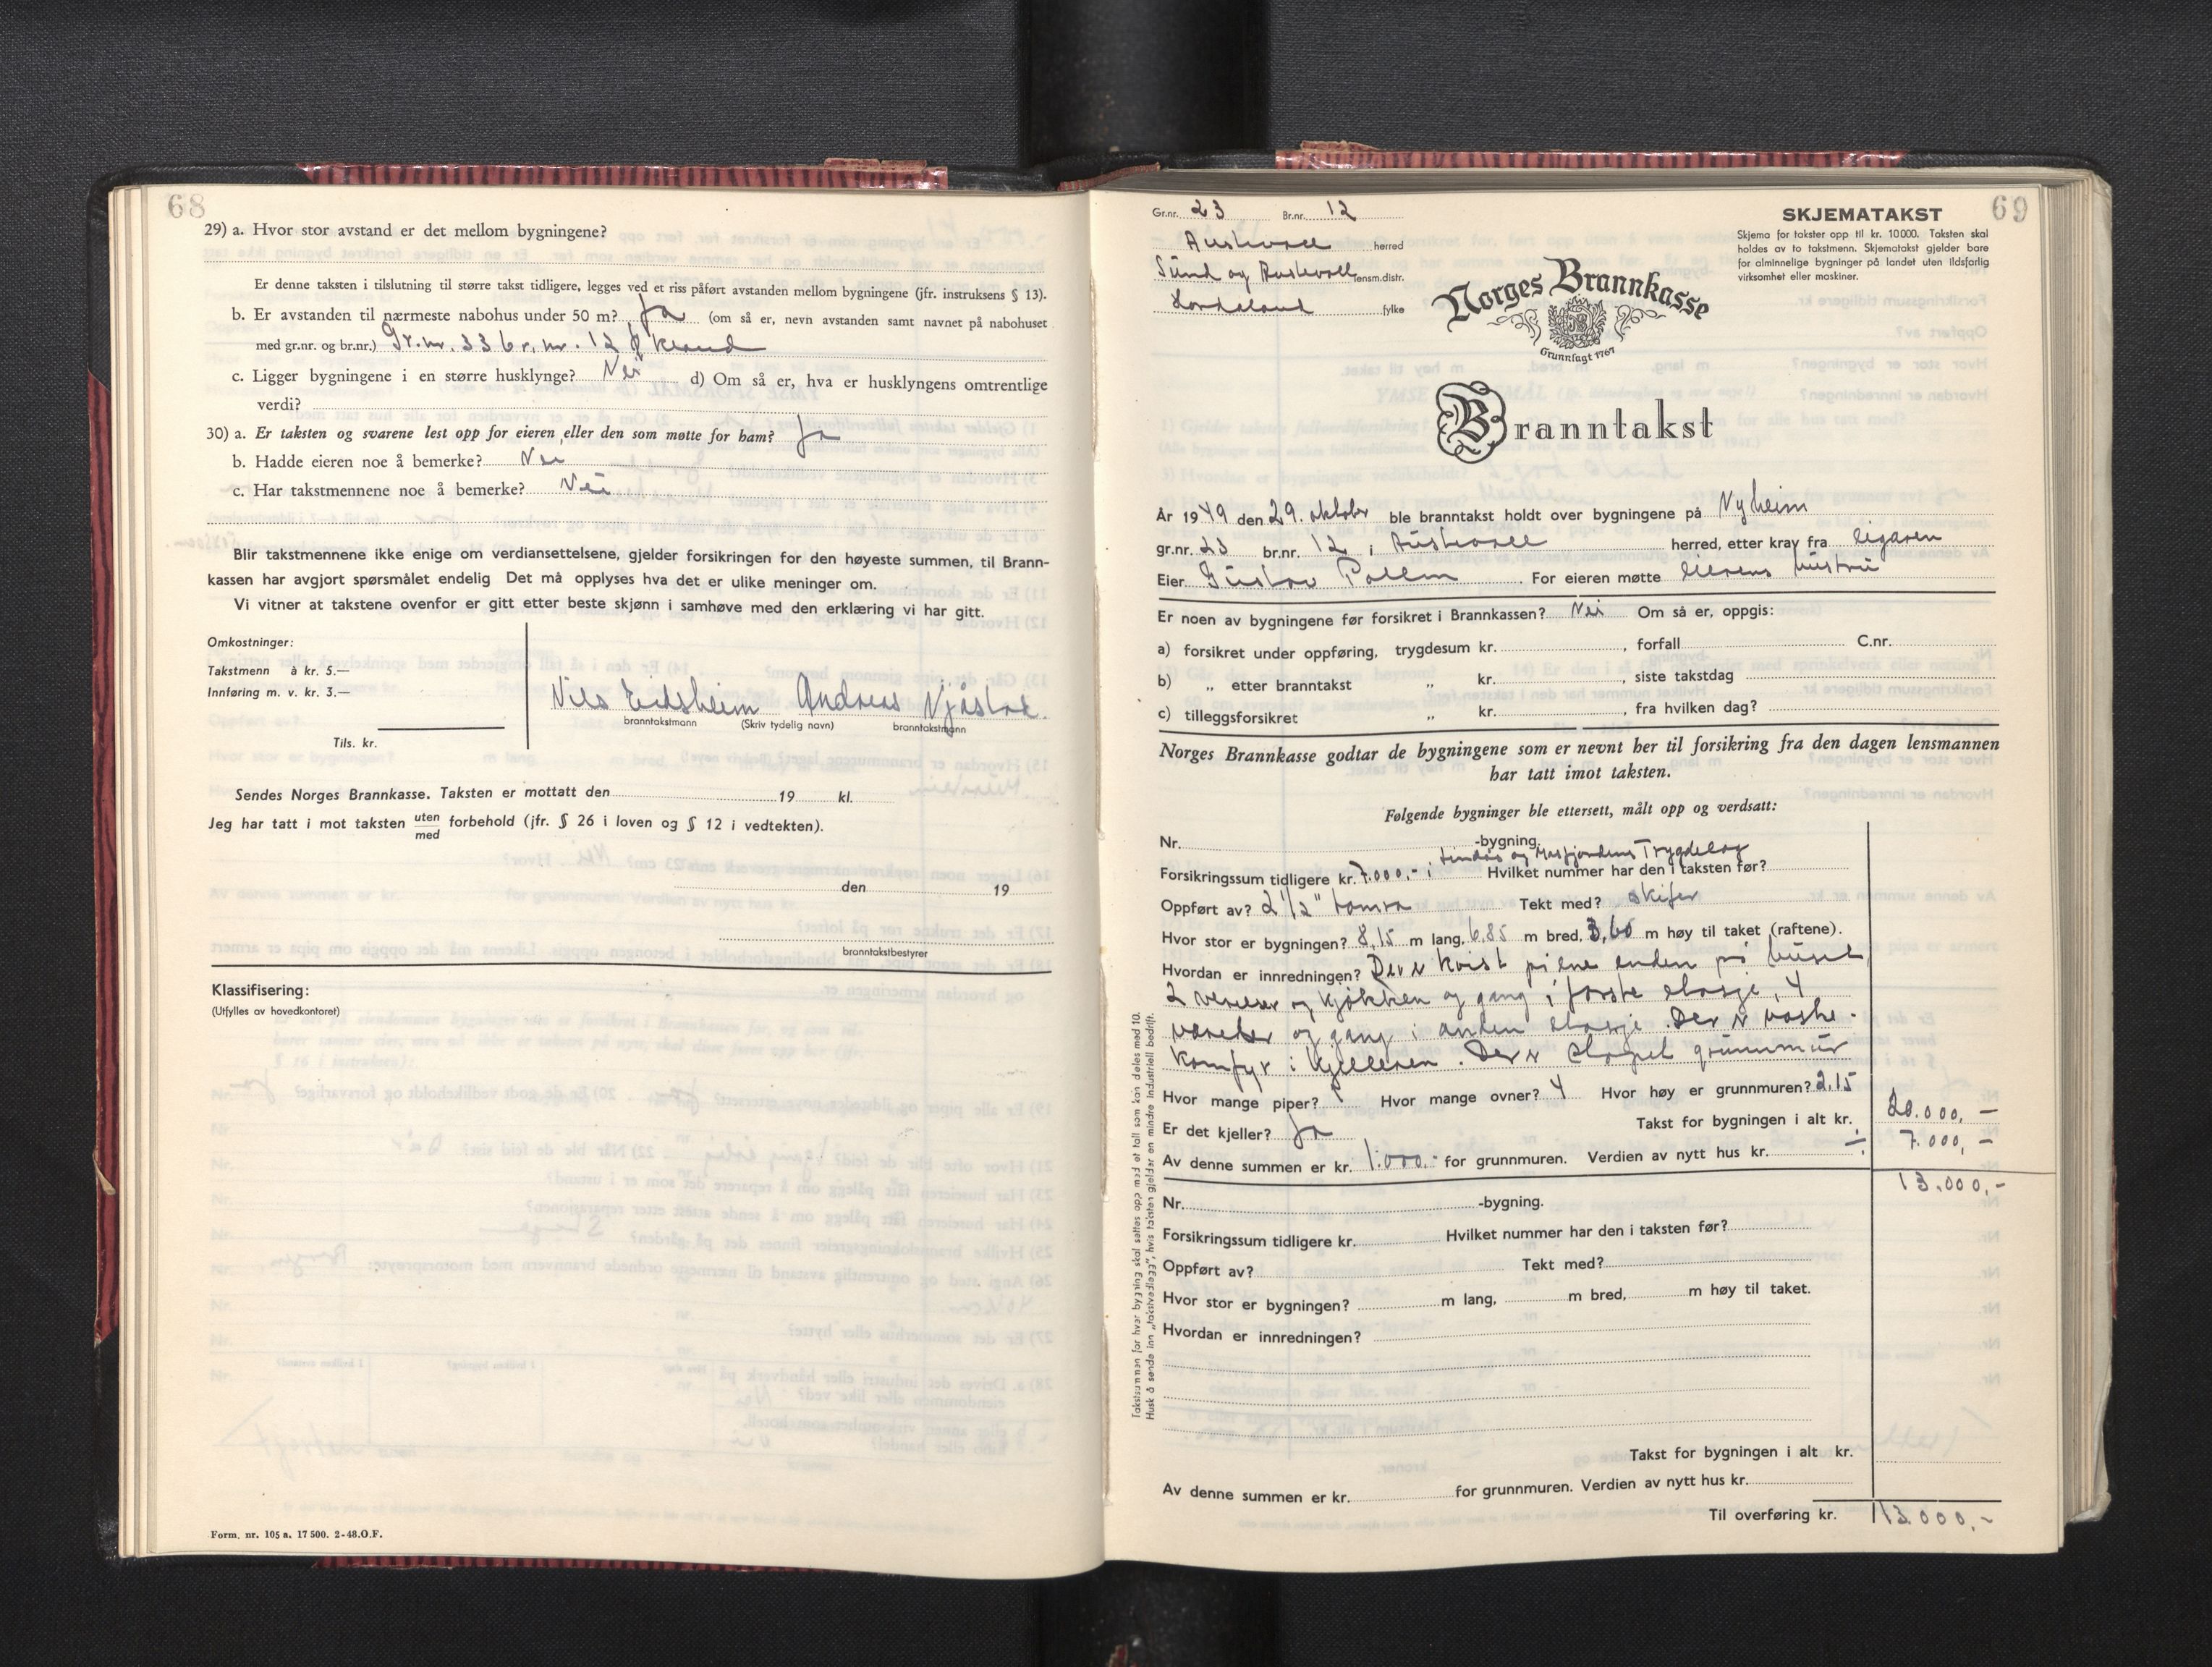 68
29) a. Hvor stor avstand er det mellom bygningene?
Er denne taksten i tilslutning til større takst tidligere, legges ved et riss påført avstanden mellom bygningene (jfr. instruksens § 13).
b. Er avstanden til nærmeste nabohus under 50 m? Ja (om så er, nevn avstanden samt navnet på nabohuset
med gr.nr. og br.nr.) Gr.nr. 33 br.nr. 12
c. Ligger bygningene i en større husklynge? Nei d) Om så er, hva er husklyngens omtrentlige
verdi?
30) a. Er taksten og svarene lest opp for eieren eller den som møtte for ham? Ja
b. Hadde eieren noe å bemerke? Nei
c. Har takstmennene noe å bemerke? Nei
Blir takstmennene ikke enige om verdiansettelsene, gjelder forsikringen for den høyeste summen, til Brann-
kassen har avgjort spørsmålet endelig Det må opplyses hva det er ulike meninger om.
Vi vitner at takstene ovenfor er gitt etter beste skjønn i samhøve med den erklæring vi har gitt.
Omkostninger:
Takstmenn à kr. 5.—
Innføring m. v. kr. 3.—
Tils. kr.
Nils Eidsheim Andreas Njåstad.
branntakstmann (Skriv tydelig navn) branntakstmann
Sendes Norges Brannkasse. Taksten er mottatt den 19 kl.
Jeg har tatt i mot taksten uten med forbehold (jfr. § 26 i loven og § 12 i vedtekten).
den 19
branntakstbestyrer
Klassifisering:
(Utfylles av hovedkontoret)
Form. nr. 105 a. 17 500. 2-48.O.F.
69
Gr.nr. 23 Br.nr. 12
Austevoll herred
Sund og Austevoll lensm.distr.
Hordaland fylke
SKJEMATAKST
Skjema for takster opp til kr. 10 000. Taksten skal
holdes av to takstmenn. Skjematakst gjelder bare
for alminnelige bygninger på landet uten ildsfarlig
virksomhet eller maskiner.
Norges Brannkasse
Grunnlagt 1767
Branntakst
År 1949 den 29. oktober ble branntakst holdt over bygningene på Nyheim
gr.nr. 23 br.nr. 12 i Austevoll herred, etter krav fra eigaren
Eier Gustav Pollen For eieren møtte eierens hustru
Er noen av bygningene før forsikret i Brannkassen? Nei Om så er, oppgis:
a) forsikret under oppføring, trygdesum kr. , forfall C.nr.
b) „ etter branntakst „ kr. , siste takstdag
c) tilleggsforsikret „ kr. , fra hvilken dag?
Norges Brannkasse godtar de bygningene som er nevnt her til forsikring fra den dagen lensmannen
har tatt imot taksten.
Følgende bygninger ble ettersett, målt opp og verdsatt:
Nr. -bygning.
Lindås og Masfjordens Trygdelag
Forsikringssum tidligere kr. 7.000.- i Hvilket nummer har den i taksten før?
Oppført av? 2 1/2" tømra Tekt med? skifer
Hvor stor er bygningen? 8,15 m lang, 6,85 m bred, 3,60 m høy til taket (raftene).
Hvordan er innredningen? Der er kvist på ene enden på huset
2 verelser og kjøkken og gang i første etasje, 4
værelser og gang i anden etasje. Der er vaske-
komfyr i kjelleren. Der er støpet grunnmur
Hvor mange piper? 1 Hvor mange ovner? 4 Hvor høy er grunnmuren? 2,15
Er det kjeller? Ja Takst for bygningen i alt kr. 20.000,—
Av denne summen er kr. 1.000.- for grunnmuren. Verdien av nytt hus kr. ÷ 7.000,—
13.000,-
Nr. -bygning.
Forsikringssum tidligere kr. Hvilket nummer har den i taksten før?
Oppført av? Tekt med?
Hvor stor er bygningen? m lang, m bred, m høy til taket.
Hvordan er innredningen?
Takst for bygningen i alt kr.
Av denne summen er kr. for grunnmuren. Verdien av nytt hus kr.
Til overføring kr. 13.000,-
Takstsummen for hver bygning skal settes opp med et tall som kan deles med 10.
Husk å sende inn „takstvedlegg", hvis taksten gjelder en mindre industriell bedrift.